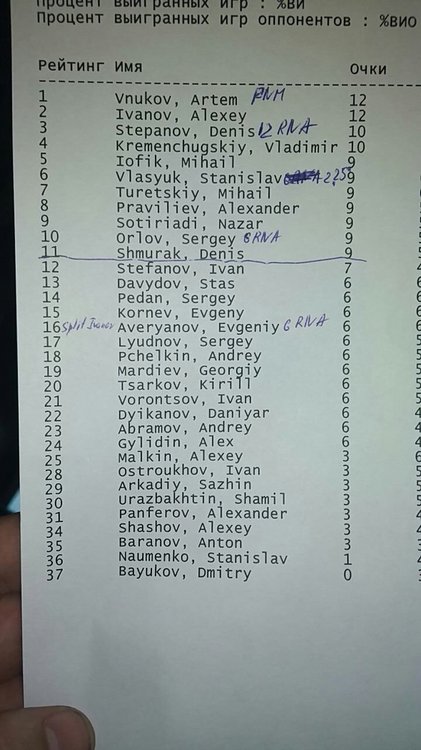 Процент выигранных игр : %ви
Процент выигранных игр оппонентов : %вио
Рейтинг Имя Очки
1 Vnukov, Artem 12
2 Ivanov, Alexey 12
3 Stepanov, Denis 12 RNA 10
4 Kremenchugskiy, Vladimir 10
5 Iofik, Mihail 9
6 Vlasyuk, Stanislav 9
7 Turetskiy, Mihail 9
8 Praviliev, Alexander 9
9 Sotiriadi, Nazar 9
10 Orlov, Sergey 6 RNA 9
11 Shmurak, Denis 9
12 Stefanov, Ivan 7
13 Davydov, Stas 6
14 Pedan, Sergey 6
15 Kornev, Evgeny 6
16 Averyanov, Evgeniy 6 RNA 6
17 Lyudnov, Sergey 6
18 Pchelkin, Andrey 6
19 Mardiev, Georgiy 6
20 Tsarkov, Kirill 6
21 Vorontsov, Ivan 6
22 Dyikanov, Daniyar 6
23 Abramov, Andrey 6
24 Gylidin, Alex 6
25 Malkin, Alexey 3
28 Ostroukhov, Ivan 3
29 Arkadiy, Sazhin 3
30 Urazbakhtin, Shamil 3
31 Panferov, Alexander 3
34 Shashov, Alexey 3
35 Baranov, Anton 3
36 Naumenko, Stanislav 1
37 Bayukov, Dmitry 0